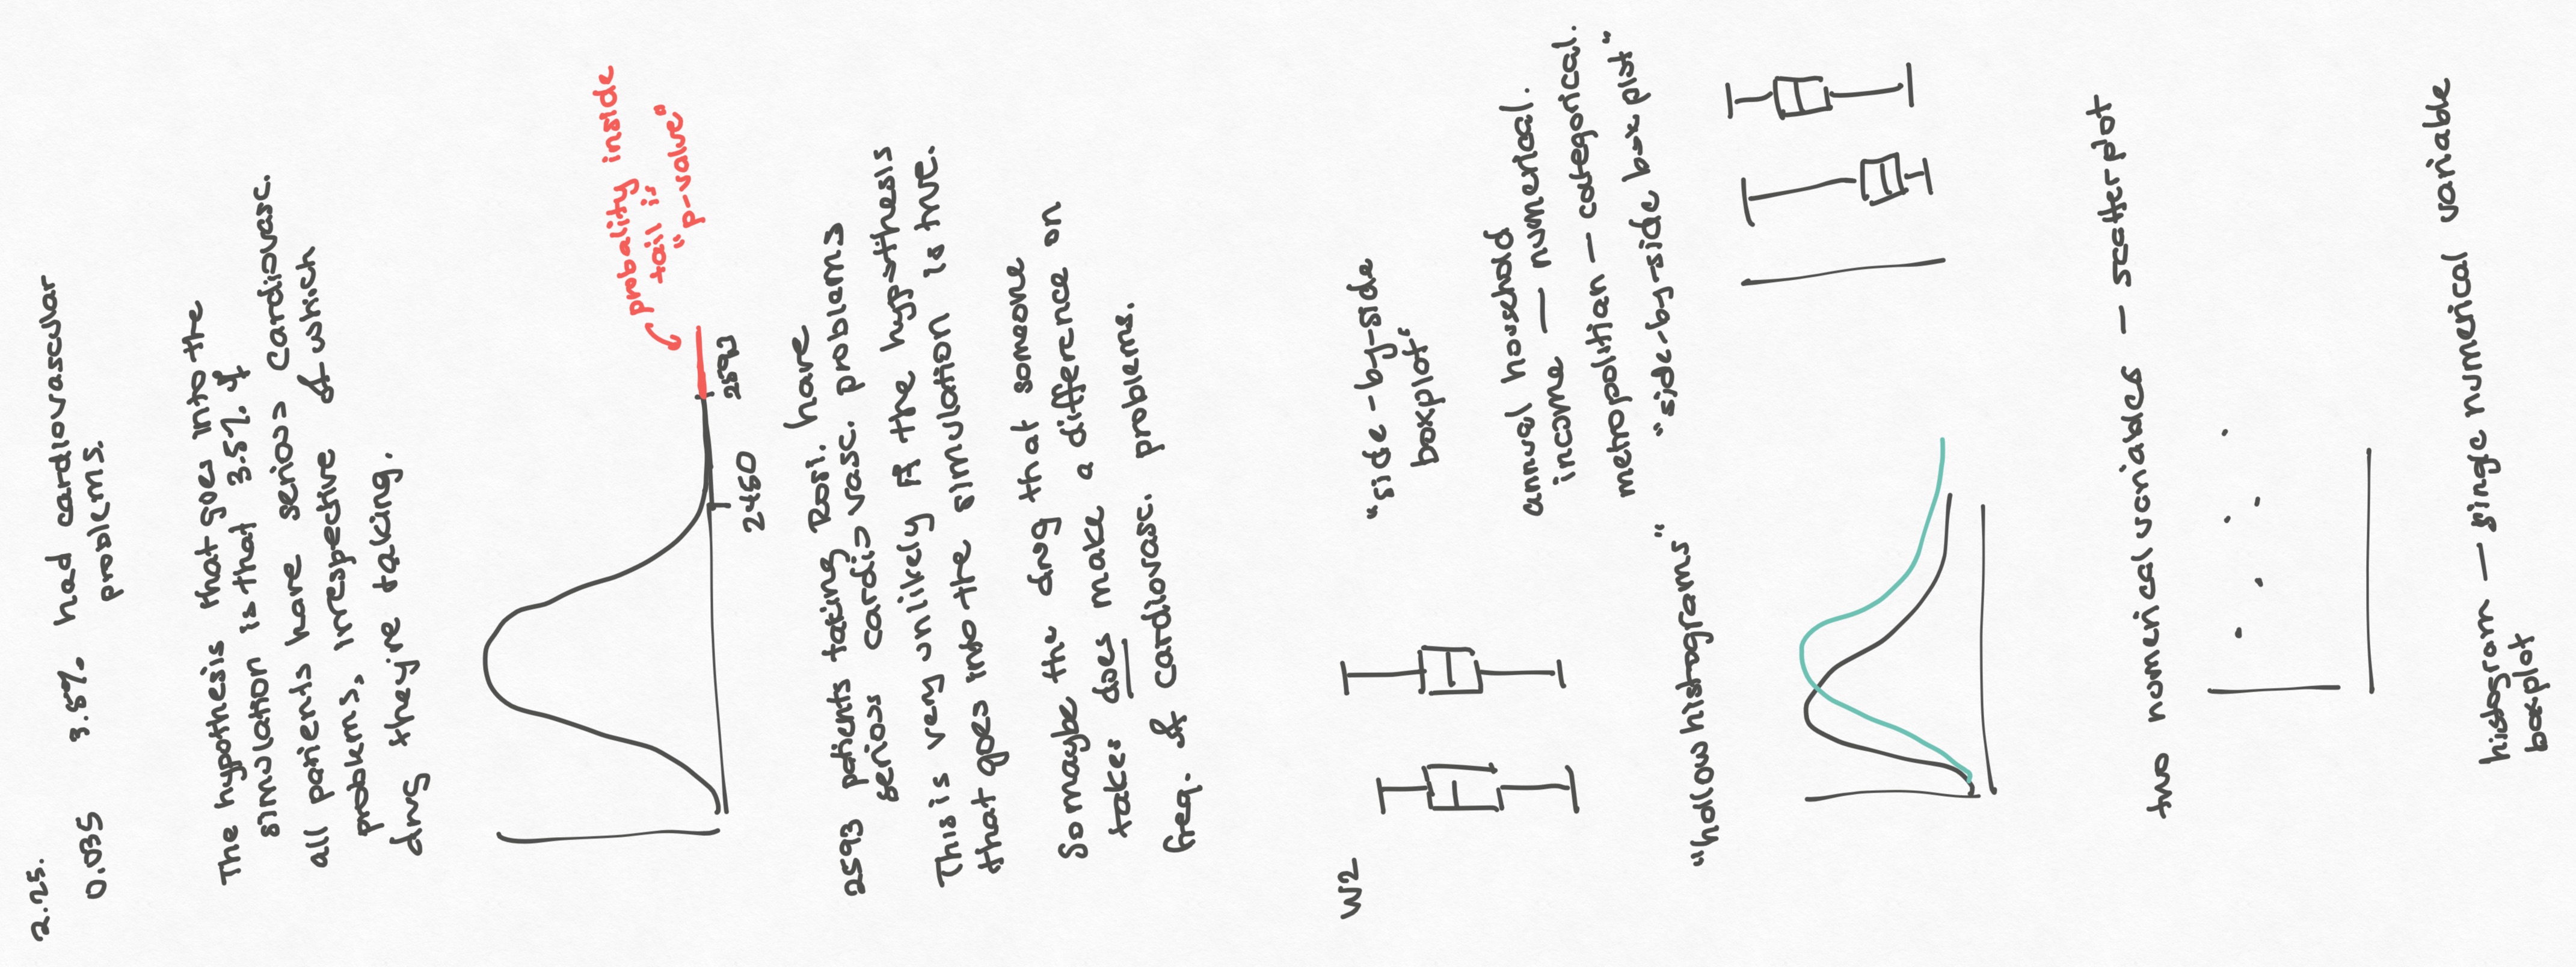 2.25.
0.035 3.5% had cardiovascular
problems.
The hypothesis that goes into the
simulation is that 3.5% of
all patients have serioss cardiovasc.
problems, irrespective of which
drug they're taking.
probality inside
tail is
"p-value"
2450
2593
2593 patients taking Rosi. have
serioss cardiovasc. problems
This is very unlikely if the hypothesis
that goes into the simulation is true.
So maybe the drug that someone
takes does make a difference on
freq. of cardiovasc. problems.
W2
"side-by-side
boxplot"
annual household
income — numerical.
metropolitian — categorical.
"side-by-side box plot"
"hollow histograms"
two numerical variables — scatterplot
histogram — single numerical variable
boxplot